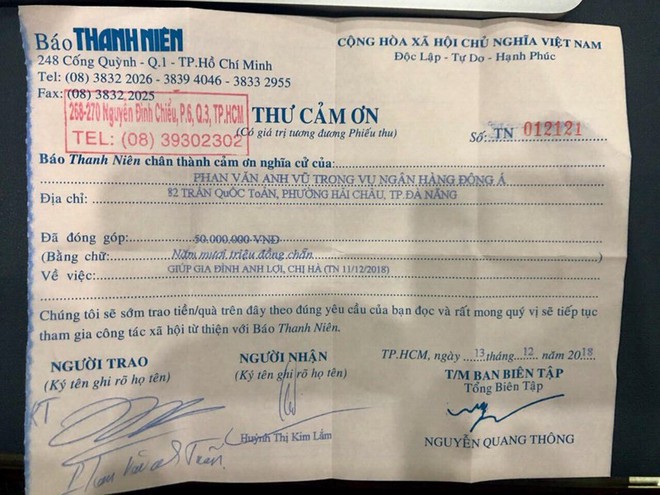 Báo THANH NIÊN
248 Cống Quỳnh - Q.1 - TP.Hồ Chí Minh
Tel: (08) 3832 2026 - 3839 4046 - 3833 2955
Fax: (08) 3832 2025
268-270 Nguyễn Đình Chiểu, P.6, Q.3, TP.HCM
TEL: (08) 39302302
CỘNG HÒA XÃ HỘI CHỦ NGHĨA VIỆT NAM
Độc Lập - Tự Do - Hạnh Phúc
THƯ CẢM ƠN
(Có giá trị tương đương Phiếu thu)
Số: TN 012121
Báo Thanh Niên chân thành cảm ơn nghĩa cử của:
PHAN VĂN ANH VŨ TRONG VỤ NGÂN HÀNG ĐÔNG Á
Địa chỉ: 82 TRẦN QUỐC TOẢN, PHƯỜNG HẢI CHÂU, TP.ĐÀ NẴNG
Đã đóng góp: 50.000.000 VNĐ
(Bằng chữ: Năm mươi triệu đồng chẵn)
Về việc: GIÚP GIA ĐÌNH ANH LỢI, CHỊ HÀ (TN 11/12/2018)
Chúng tôi sẽ sớm trao tiền/quà trên đây theo đúng yêu cầu của bạn đọc và rất mong quý vị sẽ tiếp tục
tham gia công tác xã hội từ thiện với Báo Thanh Niên.
TP.HCM, ngày 13 tháng 12 năm 2018
NGƯỜI TRAO
(Ký tên ghi rõ họ tên)
NGƯỜI NHẬN
(Ký tên ghi rõ họ tên)
T/M BAN BIÊN TẬP
Tổng Biên Tập
KT
Huỳnh Thị Kim Lắm
NGUYỄN QUANG THÔNG